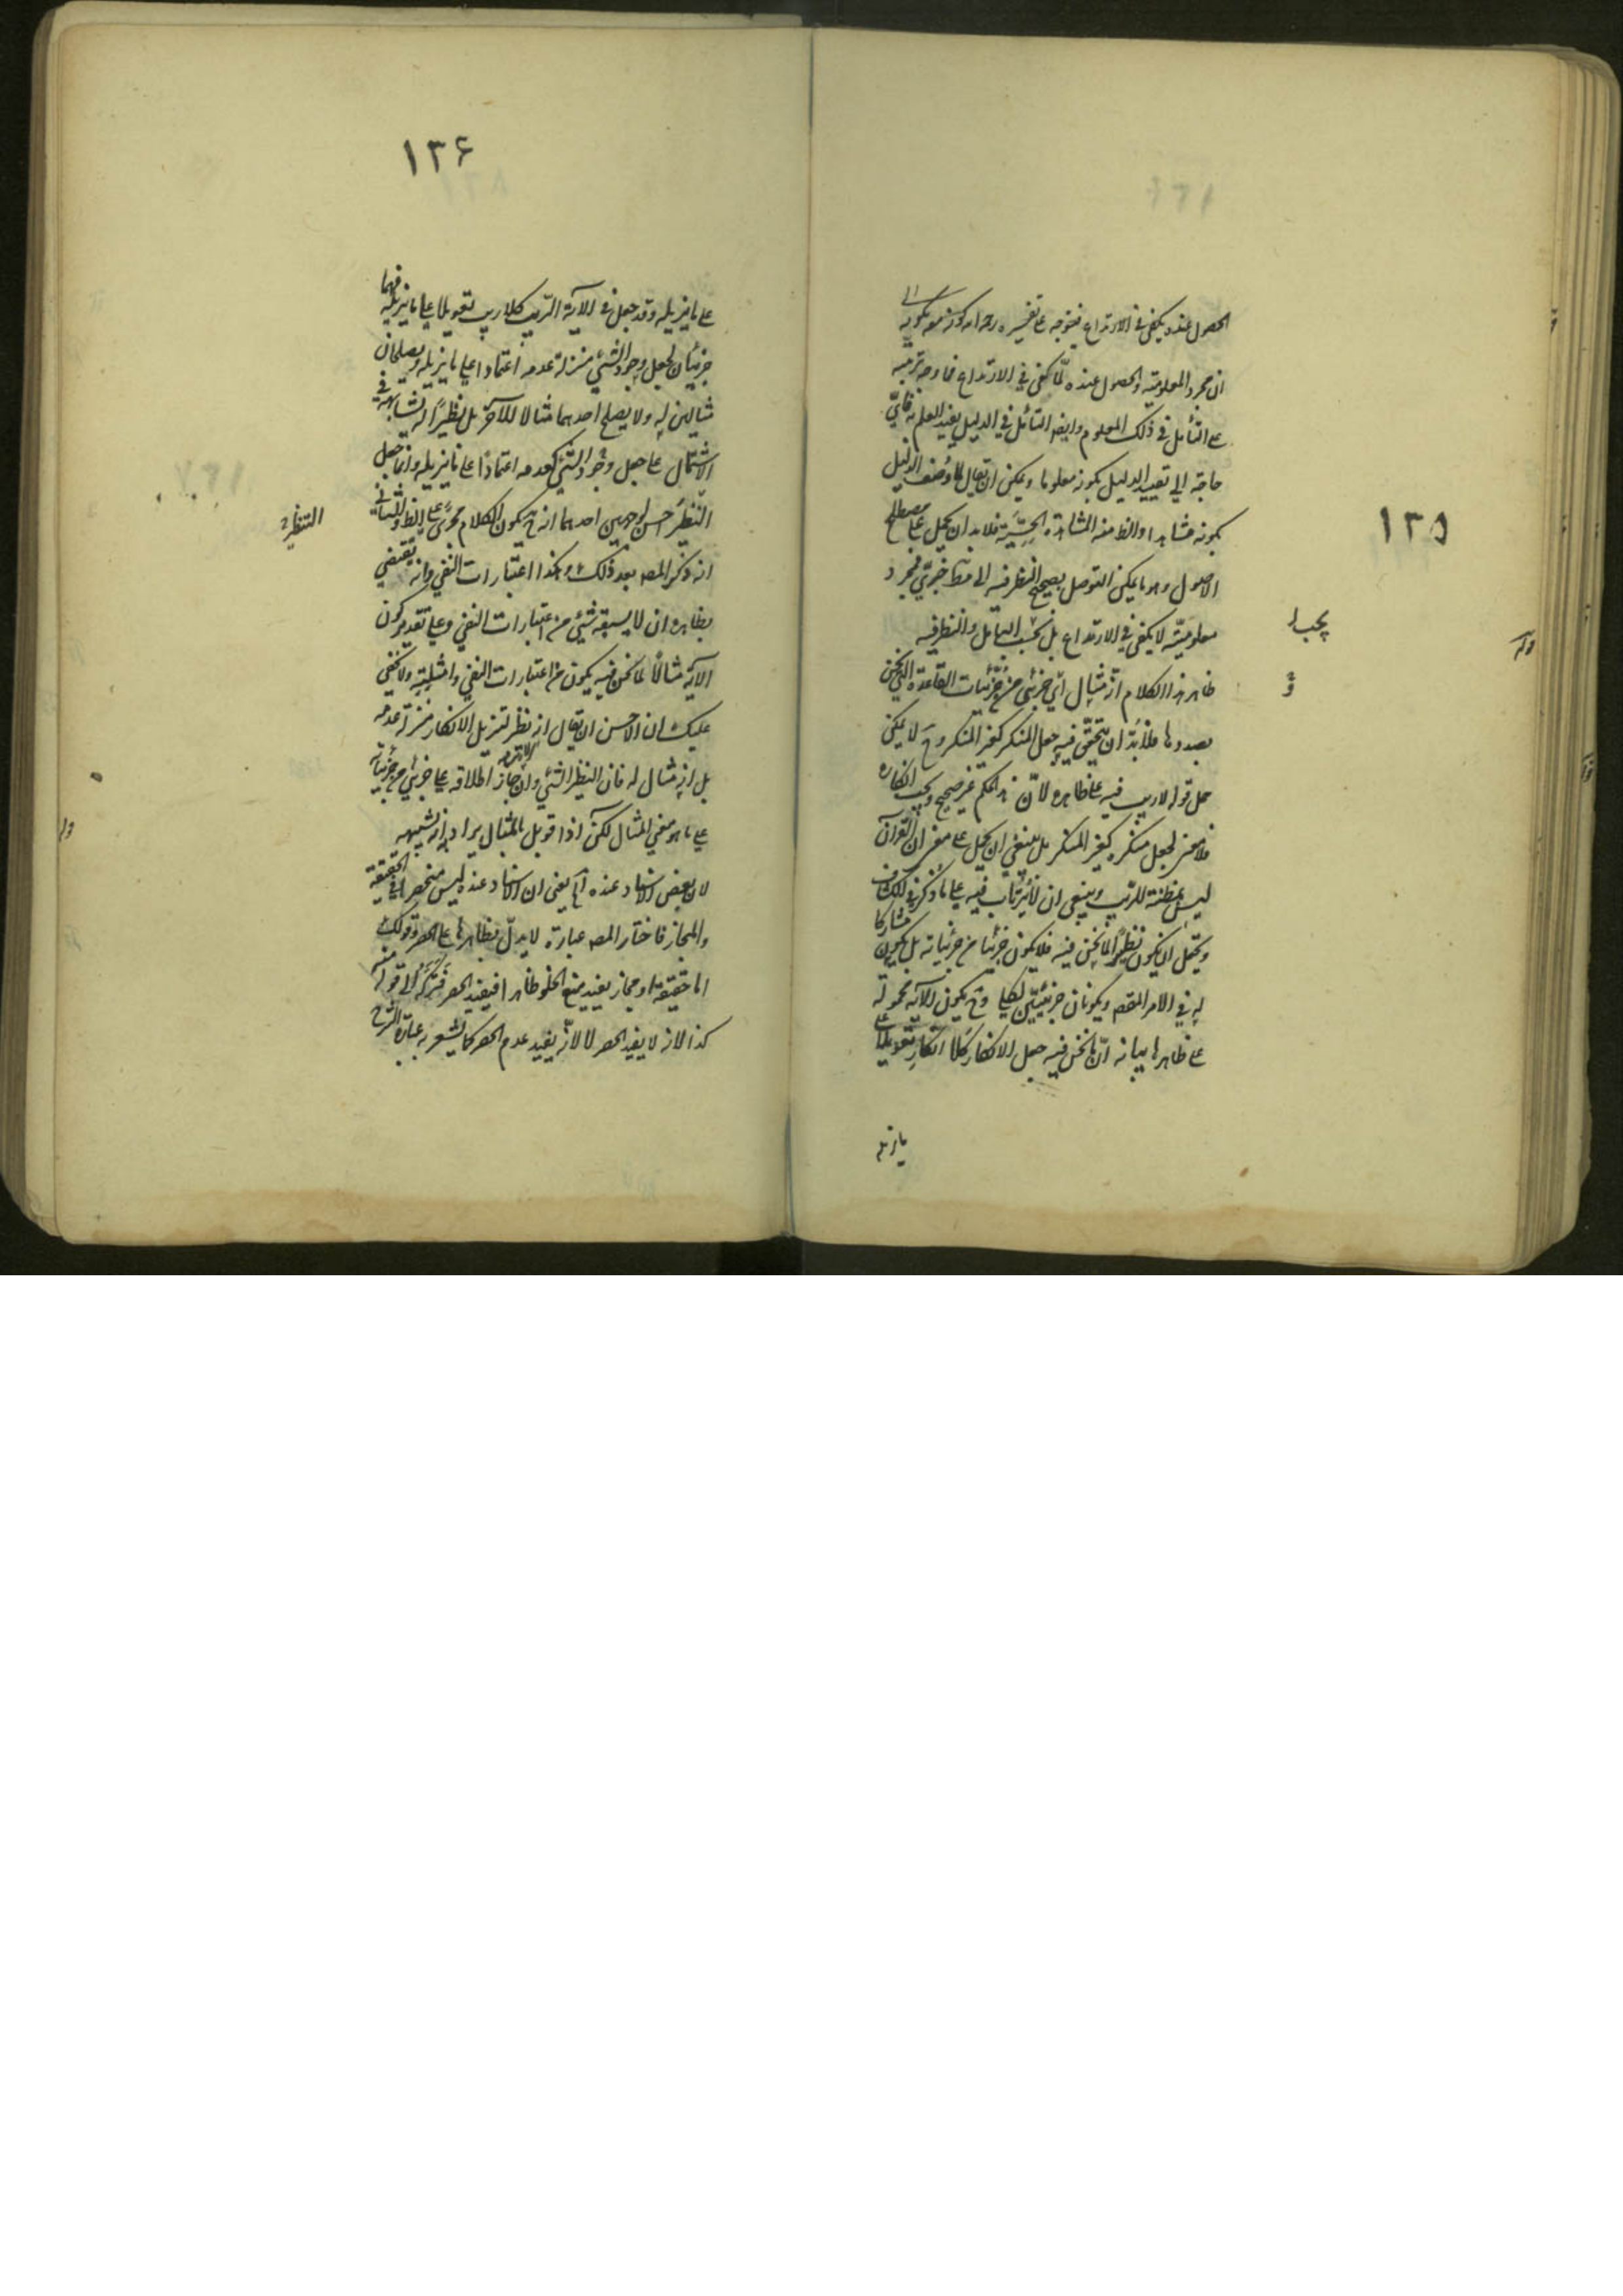 ١٣٥
الحصول عنده يكفى فى الارتداع فيتوجه على تفسيره رحمه الله كونه معه بكونه
ان مجرد المعلومية والحصول عنده لما كفى فى الارتداع فما وجه ترتبه
على التأمل فى ذلك المعلوم وايضا التأمل فى الدليل يفيد العلم به فاىّ
حاجة الى تقييد الدليل بكونه معلوما ويمكن ان يقال لما وُصف الدليل
بكونه مشاهدا والظ منه المشاهدة الحسّيّة فلابد ان يحمل على مصطلح
الاصول وهو ما يمكن التوصل بصحيح النظر فيه الى مط خبرىّ فمجرد
معلوميّته لا يكفى فى الارتداع بل يجب التأمل والنظر فيه
ظاهر هذا الكلام انّه مثال اى جزئى من جزئيات القاعدة التى نحن
بصددها فلابدّ ان يتحقّق فيه جعل المنكر كغير المنكر وح لا يمكن
حمل قوله لا ريب فيه على ظاهره لانّ هذا الحكم غير صحيح ويجب انكاره
فلا معنى لجعل منكره كغير المنكر بل ينبغى ان يحمل على معنى ان القرآن
ليس بمظنة للريب وينبغى ان لا يُرتاب فيه على ما ذُكر فى الكشاف
ويحتمل ان يكون نظيرًا لما نحن فيه فلا يكون جزئيا من جزئياته بل يكون مشاركا
له فى الامر المقصود ويكونان جزئيّين لكلى وح يكون الآية محمولة
على ظاهرها بيانه انّ ما نحن فيه جعل الانكار كلا انكار تعويلا على
يجب ا
و
قوله
ما يزيله
١٣۶
على ما يزيله وقد جعل فى الآية الريب كلا ريب تعويلا على ما يزيله فهما
جزئيان لجعل وجود الشئ منزلة عدمه اعتمادا على ما يزيله ويصلحان
مثالين له ولا يصلح احدهما مثالا للآخر بل نظيرًا له يشابهه فى
الاشتمال على جعل وجود الشئ كعدمه اعتمادًا على ما يزيله وانما جعل
التنظير احسن لوجهين احدهما انه ح يكون الكلام مجرًى على الظ والثانى
انه ذكر المصه بعد ذلك وهكذا اعتبارات النفى وانه يقتضى
بظاهره ان لا يسبقه شئ من اعتبارات النفى وعلى تقدير كون
الآية مثالا لما نحن فيه يكون من اعتبارات النفى وامثلته ولا يخفى
عليك ان الاحسن ان يقال انه نظر لتنزيل الانكار منزلة عدمه
بل انه مثال له فان النظير الشئ وان جاز اطلاقه على جزئى من جزئياته
على ما هو معنى المثال لكن اذا قوبل بالمثال يراد به انه شبيهه
لان بعض الاسناد عنده آه يعنى ان الاسناد عنده ليس منحصرا فى الحقيقة
والمجاز فاختار المصه عبارة لا يدلّ بظاهرها على الحصر وقولك
اما حقيقة او مجاز يفيد منع الخلو ظاهرا فيفيد الحصر فتركه الى قوله منه
كذا لانه لا يفيد الحصر لا لانّه يفيد عدم الحصر كما يشعر به عبارة الشرح
التنظير
قوله